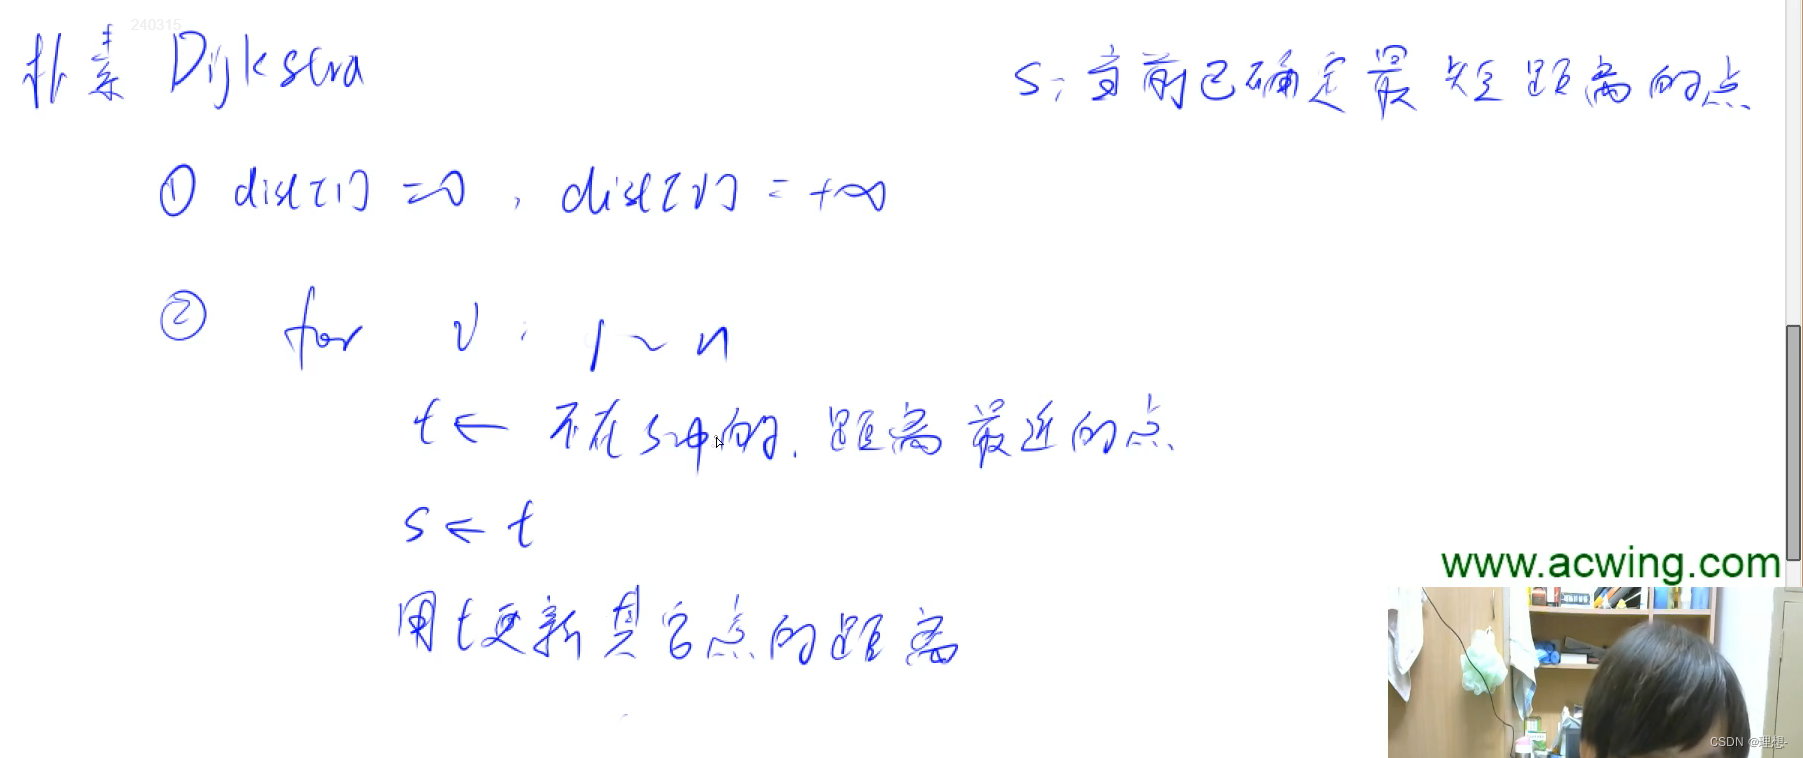 240315
朴素 Dijkstra
s: 当前已确定最短距离的点
① dist[1] = 0, dist[v] = +∞
② for v: 1 ~ n
t ← 不在s中的, 距离最近的点
s ← t
用t更新其它点的距离
www.acwing.com
CSDN @理想-